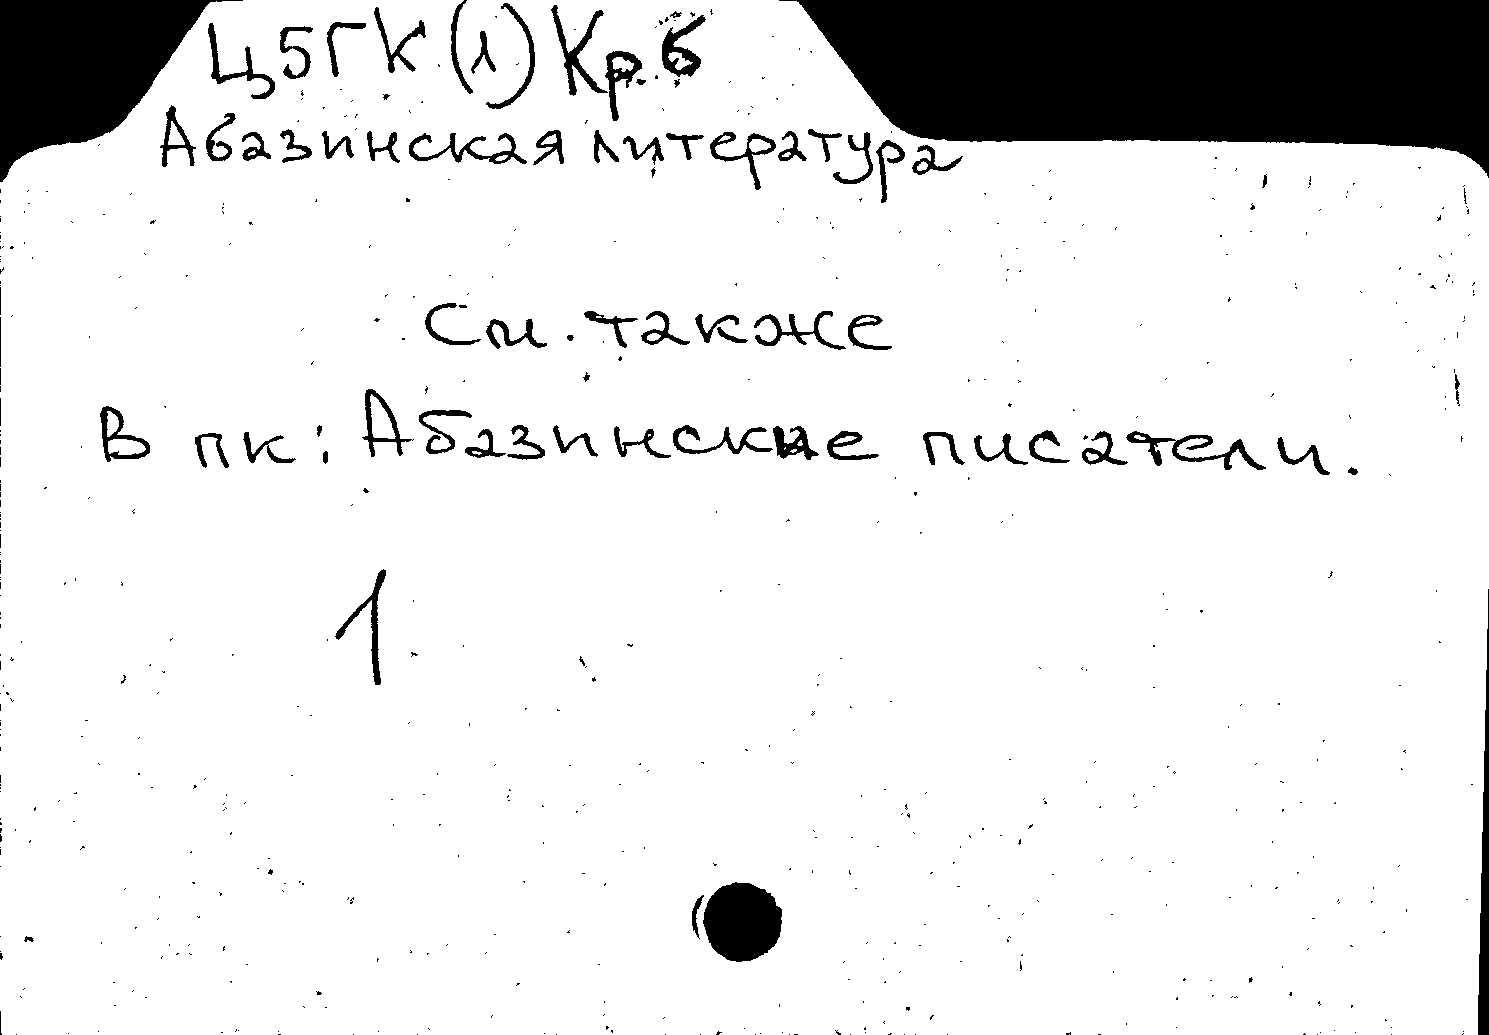 Ц5ГК(1)Кр.6
Абазинская литература
См. также
В пк: Абазинские писатели.
1